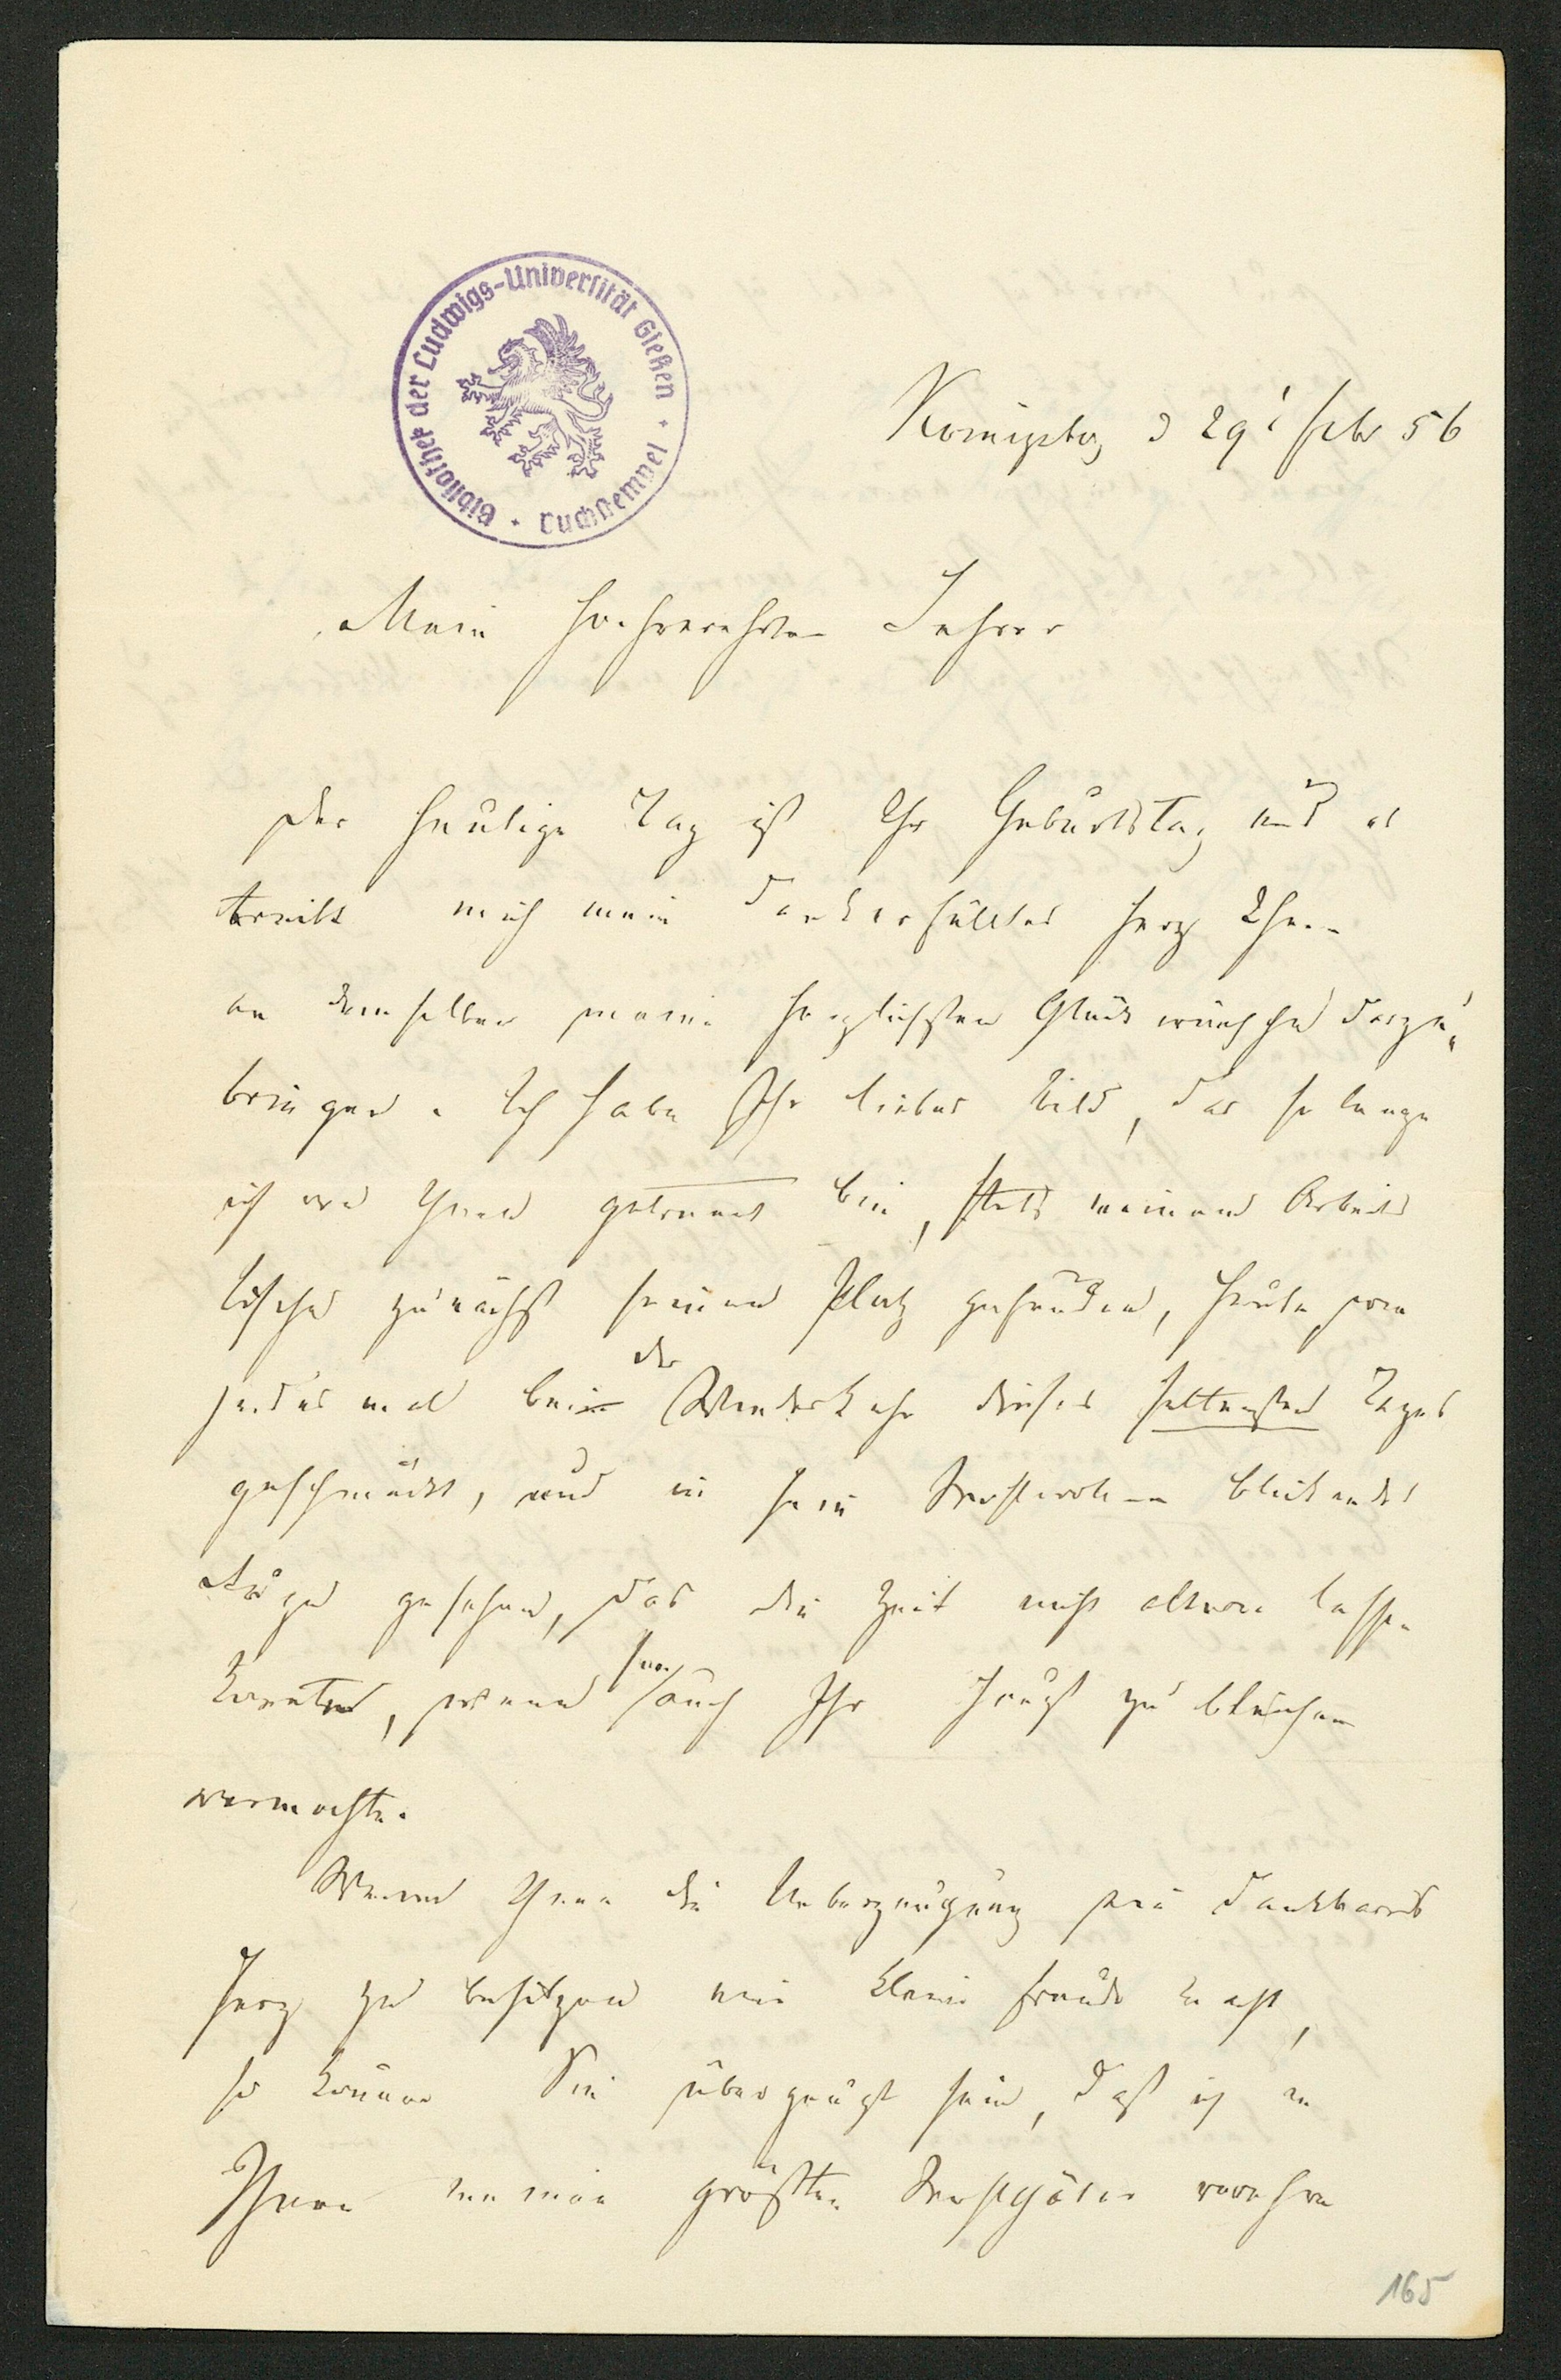 Bibliothek der Ludwigs-Universität Gießen · Buchstempel ·
Königsberg d 29t Febr 56
Mein hochverehrter Lehrer
Der heutige Tag ist Ihr Geburtstag und es
treibt mich mein dankerfülltes Herz Ihnen
an demselben meine herzlichsten Glückwünsche darzu„
bringen. Ich habe Ihr liebes Bild, das so lange
ich von Ihnen getrennt bin, stets meinem Arbeits
tische zunächst seinen Platz gefunden, heute wie
jedes mal bei der Wiederkehr dieses seltensten Tages
geschmückt, und in sein wohlwollen blickendes
Auge gesehen, das die Zeit nicht altern lassen
konnte, wenn sie auch Ihr Haupt zu bleichen
vermochte.
Wenn Ihnen die Ueberzeugung ein dankbares
Herz zu besitzen eine kleine Freude macht,
so können Sie überzeugt sein, daß ich in
Ihnen meinen größten Wohlthäter verehre
165